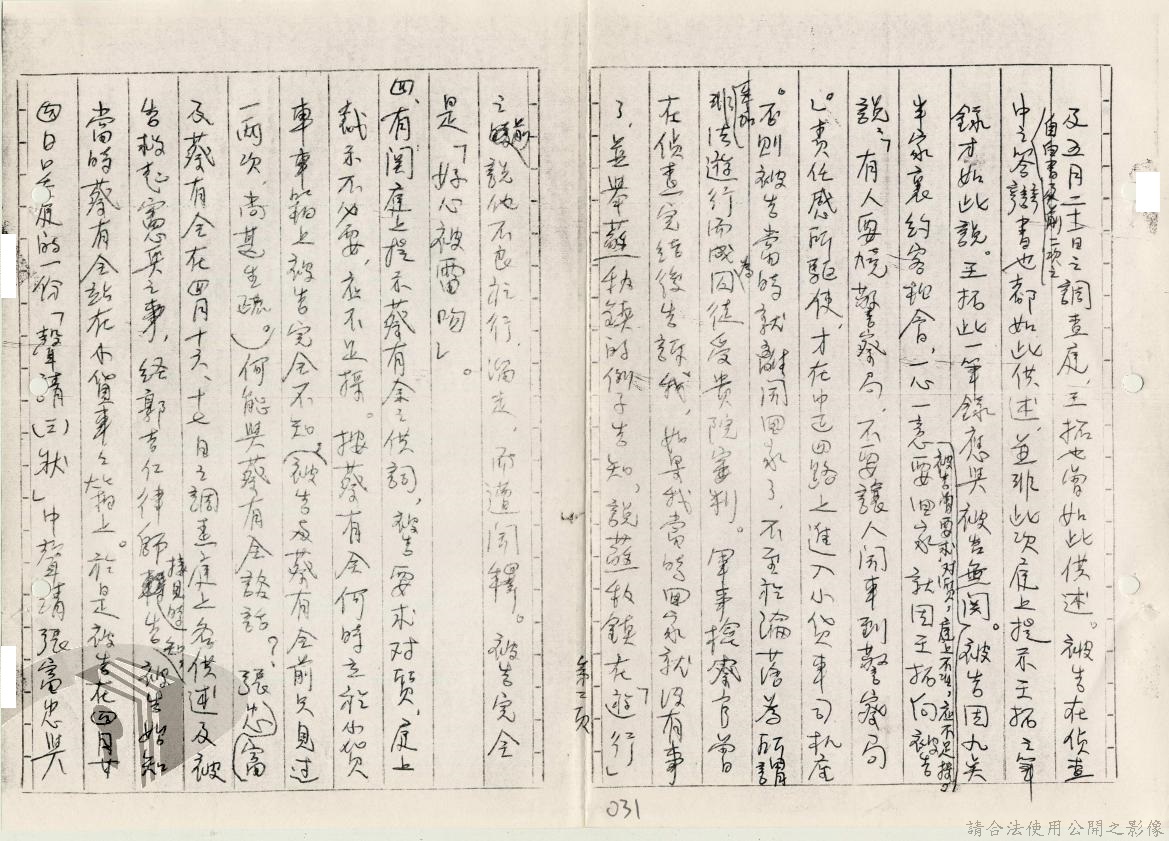 及五月二十一日之調查庭,王拓也曾如此供述。被告在偵查
自白書及前二項之
中之答辯書也都如此供述,並非此次庭上提示王拓之筆
錄才如此說。王拓此一筆錄應與被告無関。被告因九点
被告曾要求对質,庭上不准,應不足採。
半家裏約客拍合,一心一意要回家,就因王拓向被告
說:「有人要燒警察局,不要讓人開車到警察局
」。責任感所驅使,才在中正四路上進入小貨車司机座
。否則被告當時就離開回家了,不至於淪落為所謂
非法遊行而成為囚徒受貴院審判。軍事檢察官曾
在偵查完結後告訴我,如果我當時回家就沒有事
了,並舉蘇秋鎮的例子告知,說蘇秋鎮在「遊行」
第二頁
之前說他不良於行,溜走,而遭開釋。被告完全
是「好心被雷吻」。
四、有関庭上提示蔡有全之供詞,被告要求对質,庭上
裁示不必要,應不足採。按蔡有全何時立於小貨
車車箱上被告完全不知。(被告与蔡有全前只見过
一兩次,尚甚生疏。)何能與蔡有全談話?張富忠
及蔡有全在四月十六、十七日之調查庭上各供述及被
告救起憲兵之事,經郭吉仁律師接見時告知被告始知
當時蔡有全站在小貨車之車箱上。於是被告在四月廿
四日呈庭的一份「聲請(三)狀」中聲請張富忠與
031
請合法使用公開之影像